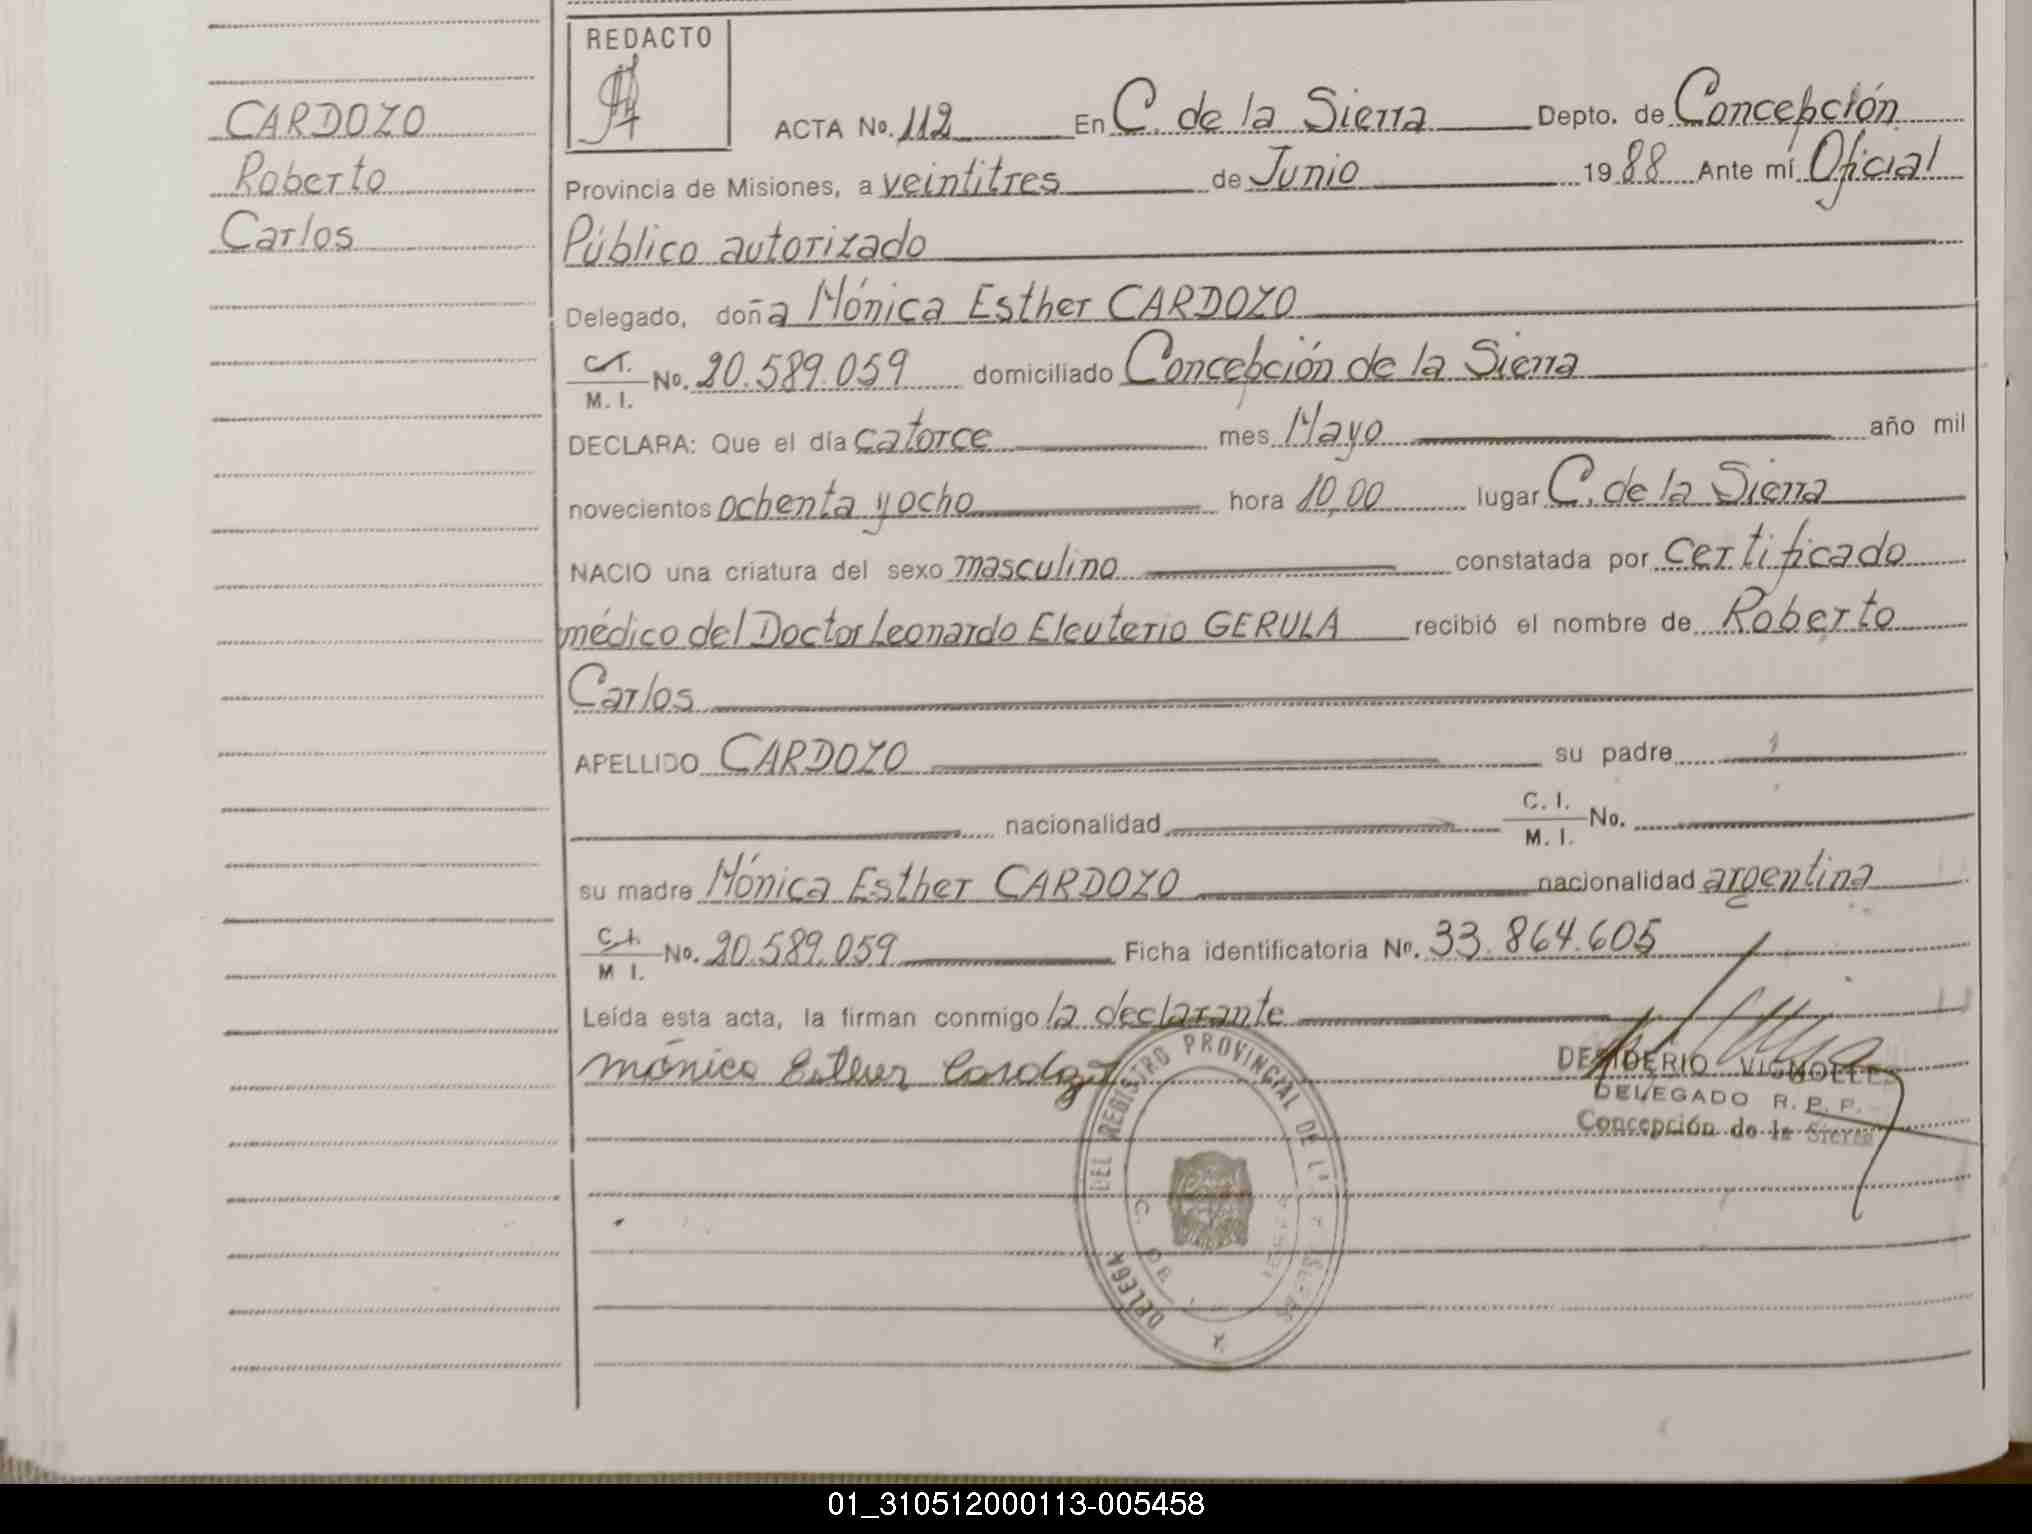 CARDOZO
Roberto
Carlos
REDACTO
ACTA No. 112 En C. de la Sierra Depto. de Concepción
Provincia de Misiones, a veintitres de Junio 1988 Ante mí Oficial
Público autorizado
Delegado, doña Mónica Esther CARDOZO
C.I.
M. I. No. 20.589.059 domiciliado Concepción de la Sierra
DECLARA: Que el día catorce mes Mayo año mil
novecientos ochenta y ocho hora 10,00 lugar C. de la Sierra
NACIO una criatura del sexo masculino constatada por certificado
médico del Doctor Leonardo Eleuterio GERULA recibió el nombre de Roberto
Carlos
APELLIDO CARDOZO su padre
nacionalidad C. I.
M. I. No.
su madre Mónica Esther CARDOZO nacionalidad argentina
C.I.
M I. No. 20.589.059 Ficha identificatoria No. 33.864.605
Leída esta acta, la firman conmigo la declarante
Mónica Esther Cardozo
DESIDERIO VIGNOLLES
DELEGADO R. P. P.
Concepción de la Sierra
DEL REGISTRO PROVINCIAL DE
C. DE